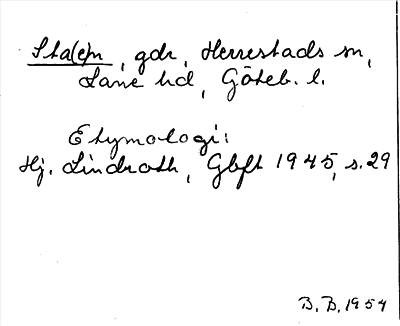 Sta(e)n, gdr, Herrestads sn,
Lane hd, Göteb. l.
Etymologi:
Hj. Lindroth, Gbft 1945, s. 29
B. B. 1954